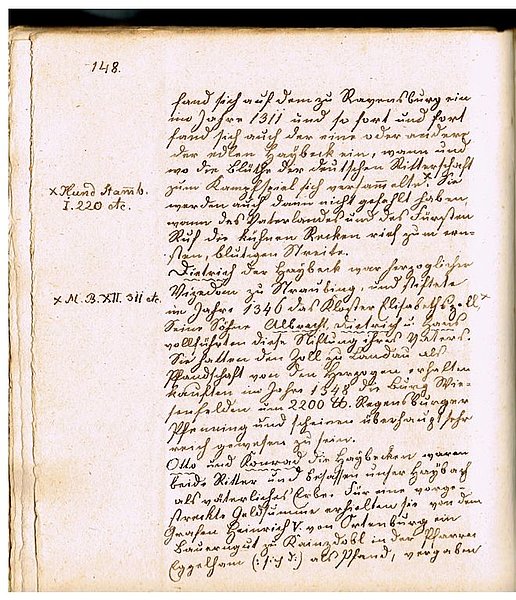 148.
fand sich auf dem zu Ravensburg ein
im Jahre 1311 und so fort und fort
fand sich auch der eine oder andere
der edlen Haÿbeck ein, wann und
wo die Blüthe der deutschen Ritterschaft
zum Kampfspiel sich versammelte.x Sie
x Hund Stamb.
I. 220 etc.
werden auch dann nicht gefehlt haben,
wann des Vaterlandes und des Fürsten
Ruf die kühnen Recken rief zum ern-
sten, blutigen Streite.
Dietrich der Haÿbeck war herzoglicher
Vizedom zu Straubing, und stiftete
x M. B. XII. 311 etc.
im Jahre 1346 das Kloster Elisabethszell.x
Seine Söhne Albrecht, Dietrich u. Hans
vollführten diese Stiftung ihres Vaters.
Sie hatten den Zoll zu Landau als
Pfandschaft von den Herzogen erhalten
kauften im Jahre 1348 die Burg Wie-
senfelden um 2200 ℔. Regensburger
Pfenning und scheinen überhaupt sehr
reich gewesen zu sein.
Otto und Konrad die Haÿbecken waren
beide Ritter und besassen unser Haÿbach
als väterliches Erbe. Für eine vorge-
streckte Geldsumme erhielten sie von dem
Grafen Heinrich V. von Ortenburg ein
Bauerngut zu Kainzdobl in der Pfarrei
Eggelham als Pfand, vergaben